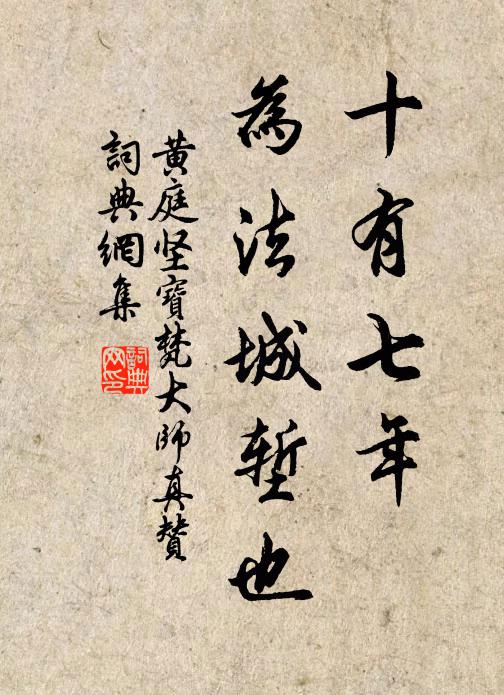 十有七年
為法城塹也
黄庭坚寶梵大師真贊
詞典網集
詞典網印